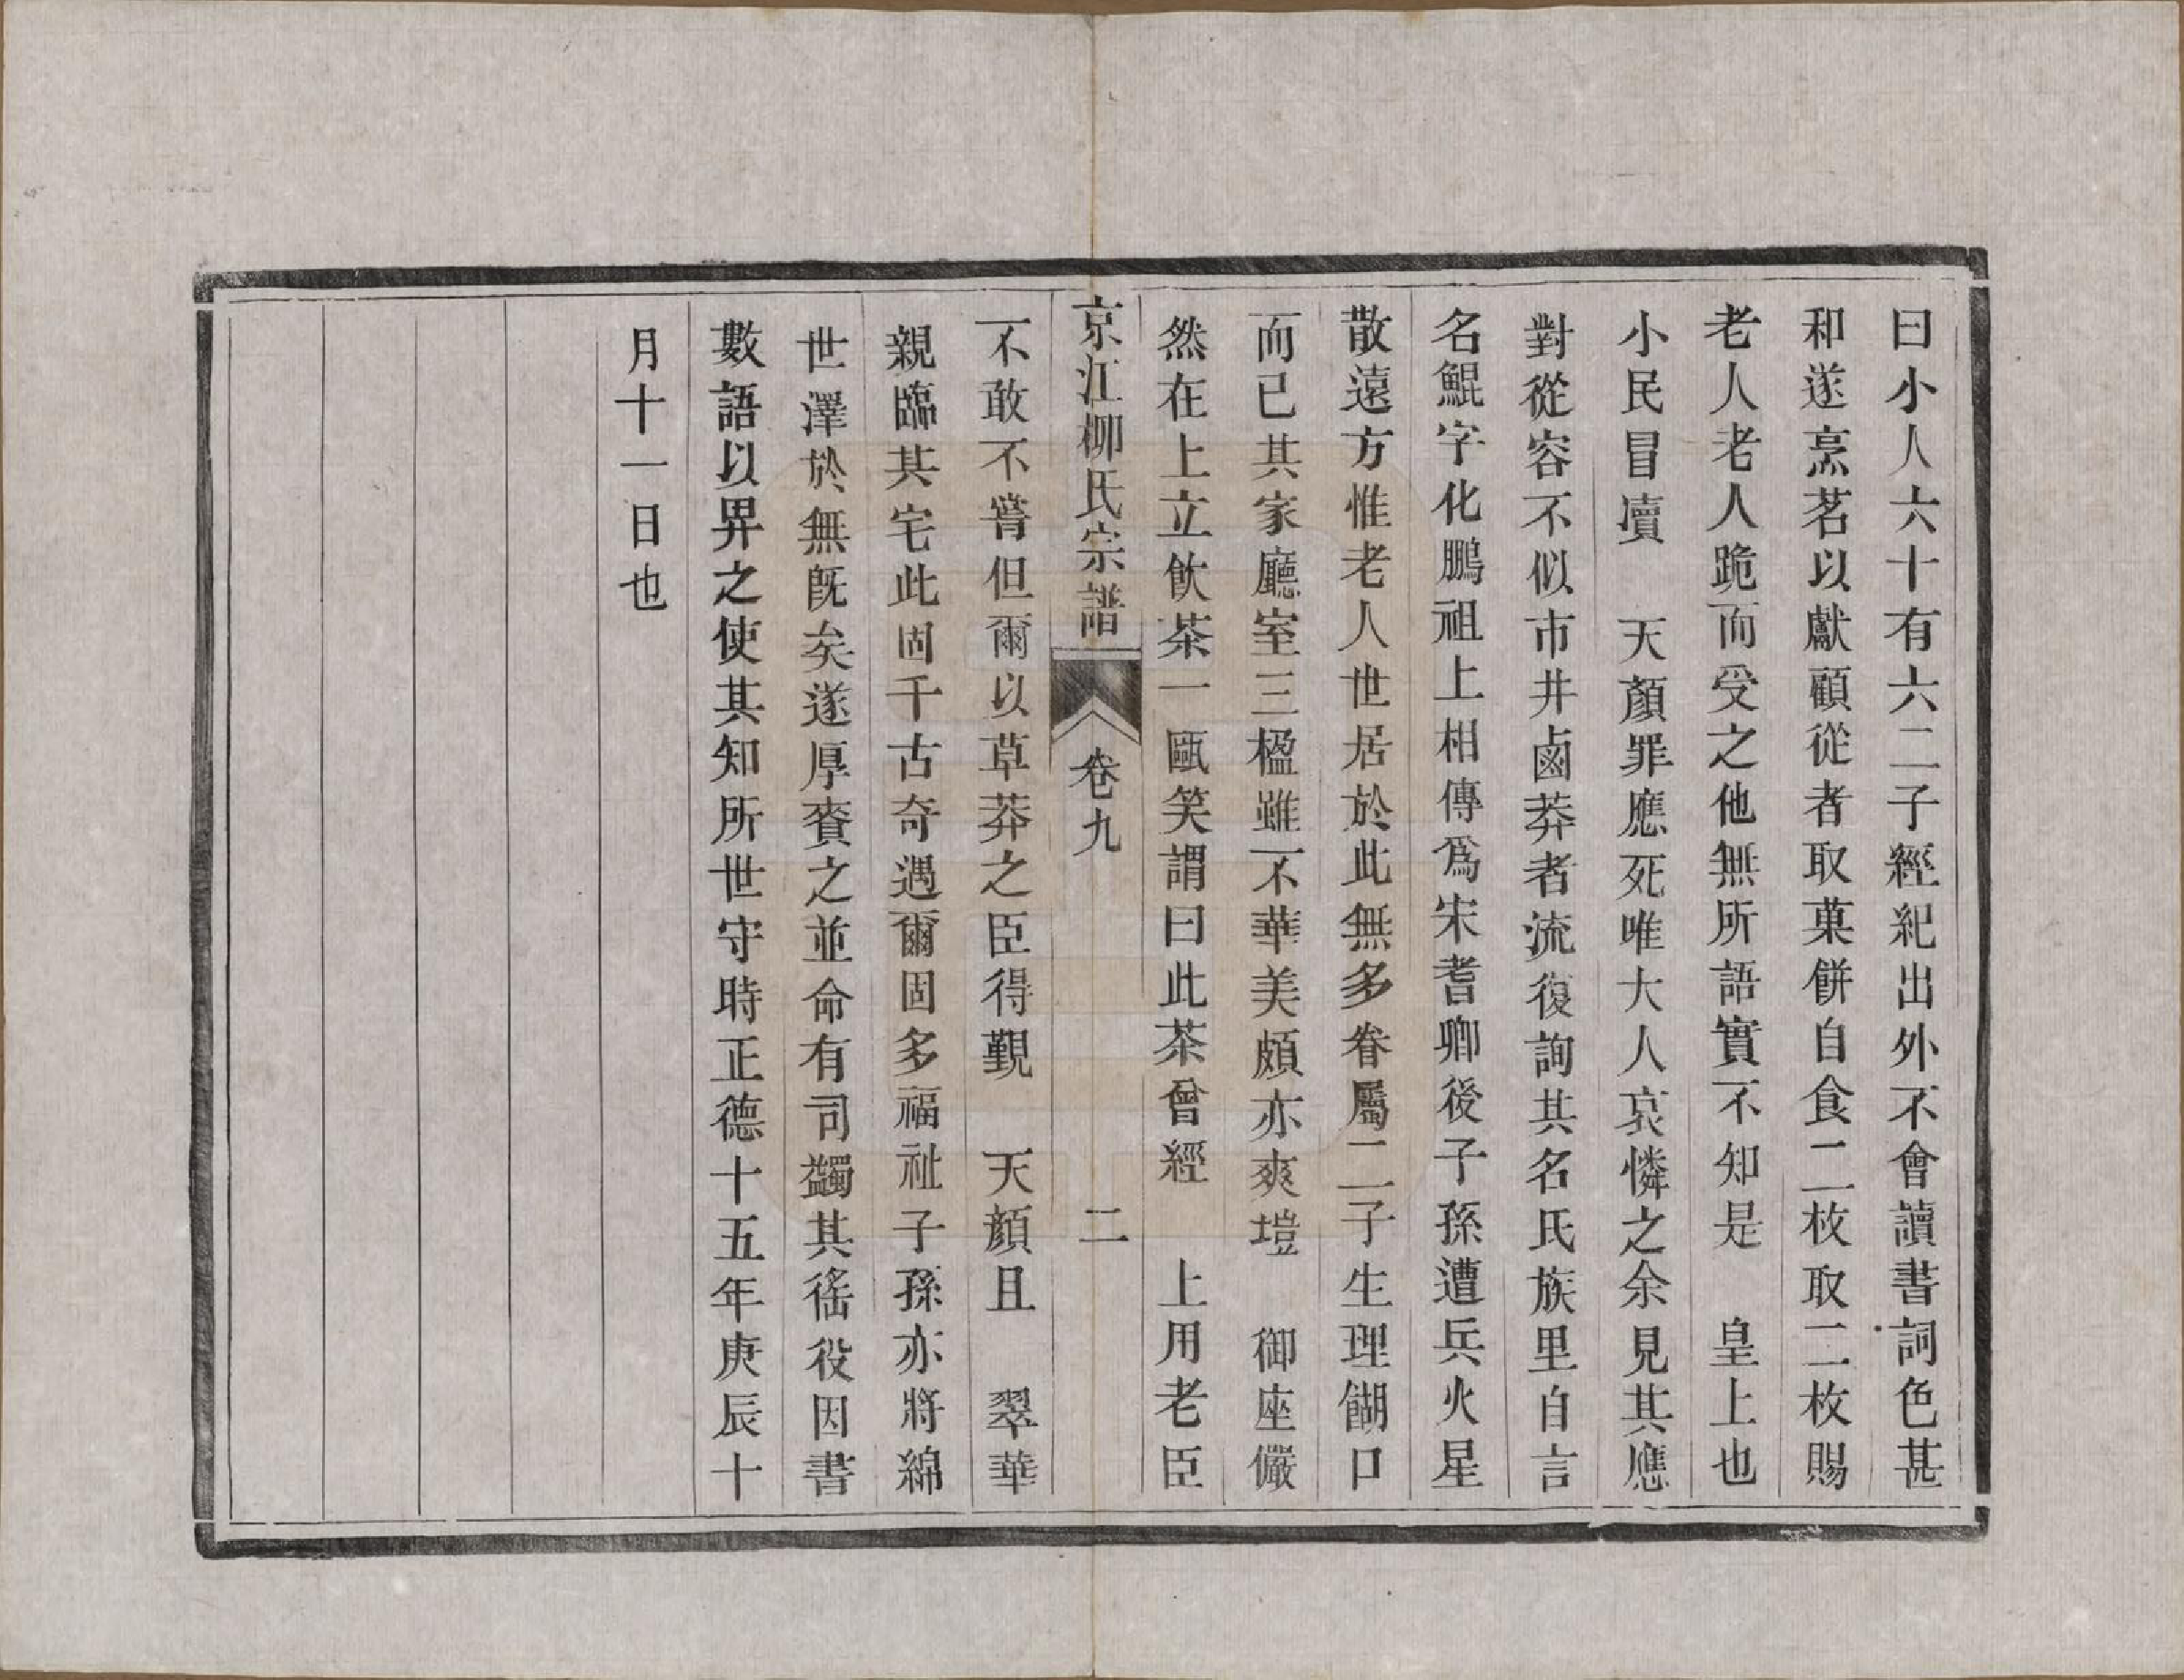 曰小人六十有六二子經紀出外不會讀書詞色甚
和遂烹茗以獻顧從者取菓餅自食二枚取二枚賜
老人老人跪而受之他無所語實不知是　皇上也
小民冒凟　天顏罪應死唯大人哀憐之余見其應
對從容不似市井鹵莽者流復詢其名氏族里自言
名鯤字化鵬祖上相傳爲宋耆卿後子孫遭兵火星
散遠方惟老人世居於此無多眷屬二子生理餬口
而已其家廳室三楹雖不華美頗亦爽塏　御座儼
然在上立飲茶一甌笑謂曰此茶曾經　上用老臣
京江柳氏宗譜　卷九　二
不敢不嘗但爾以草莽之臣得覲　天顏且　翠華
親臨其宅此固千古奇遇爾固多福祉子孫亦將綿
世澤於無旣矣遂厚賚之並命有司蠲其徭役因書
數語以畀之使其知所世守時正德十五年庚辰十
月十一日也